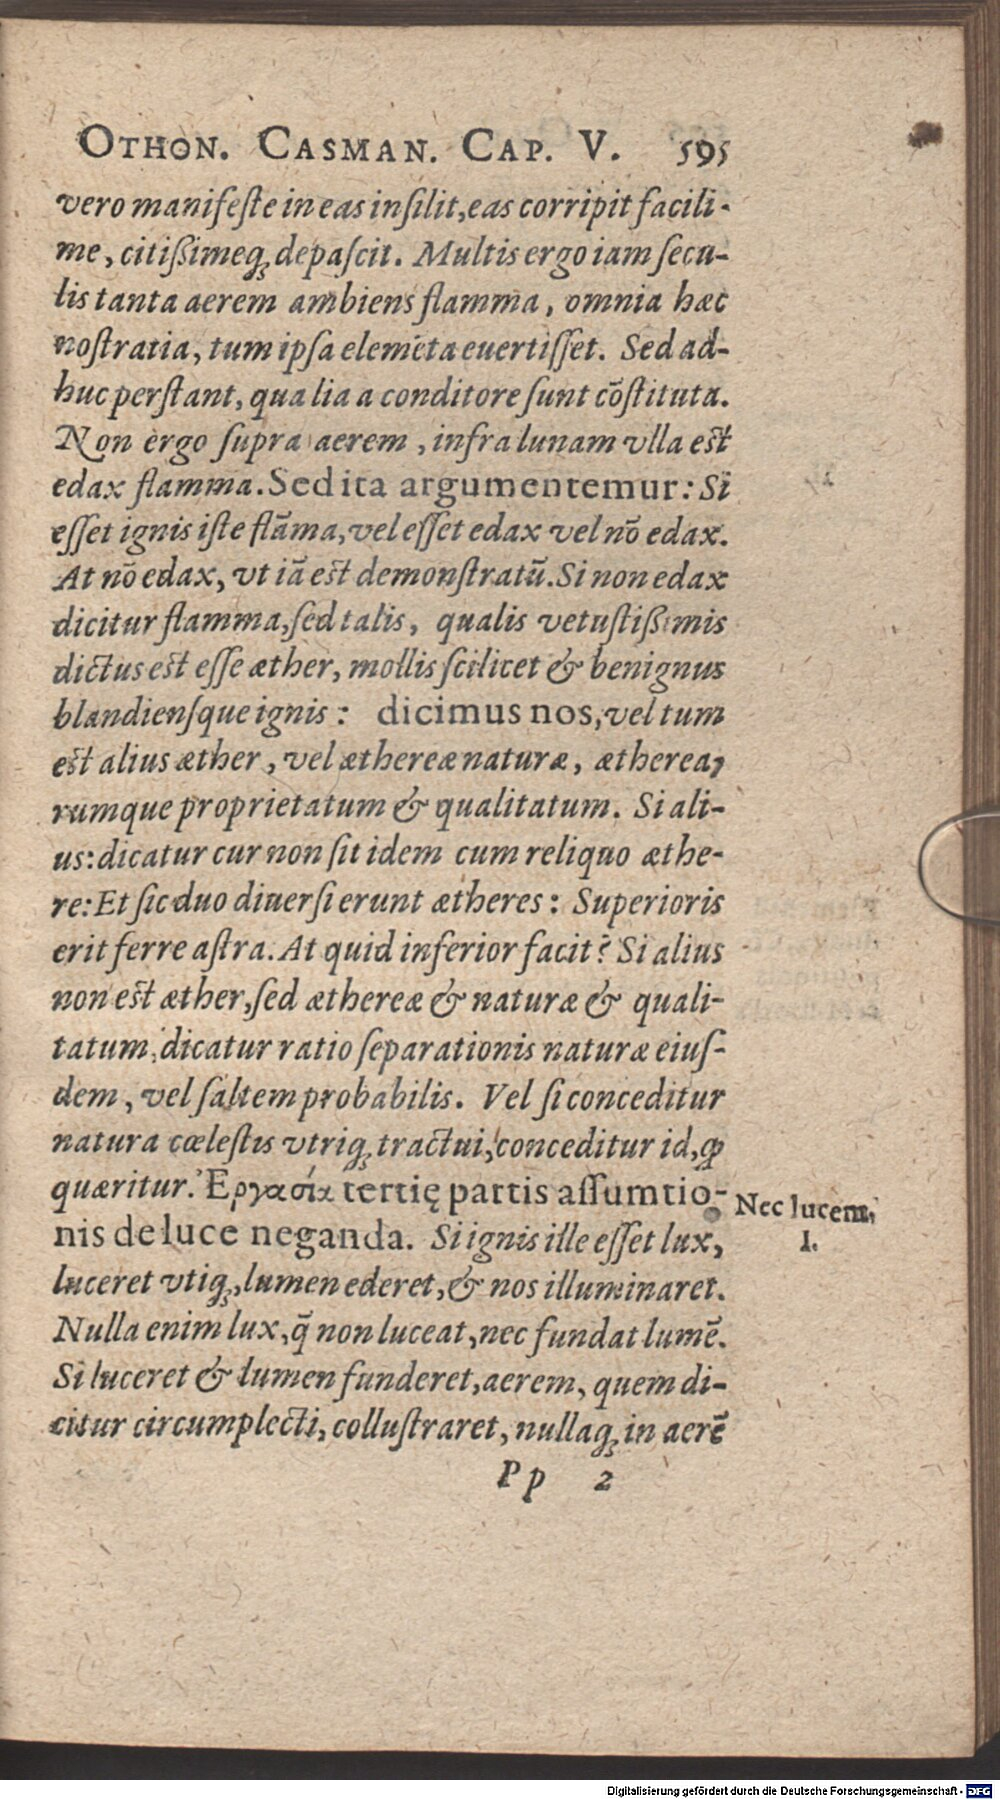 OTHON. CASMAN. CAP. V. 595
vero manifeſte in eas inſilit, eas corripit facili-
me, citißimeq́ꝫ depaſcit. Multis ergo iam ſecu-
lis tanta aerem ambiens flamma, omnia hæc
noſtratia, tum ipſa elemẽta euertiſſet. Sed ad-
huc perſtant, qualia a conditore ſunt cõſtituta.
Non ergo ſupra aerem, infra lunam vlla eſt
edax flamma. Sed ita argumentemur: Si
eſſet ignis iſte flãma, vel eſſet edax vel nõ edax.
At nõ edax, vt iã eſt demonſtratũ. Si non edax
dicitur flamma, ſed talis, qualis vetuſtißimis
dictus eſt eſſe æther, mollis ſcilicet & benignus
blandienſque ignis: dicimus nos, vel tum
eſt alius æther, vel æthereæ naturæ, ætherea,
rumque proprietatum & qualitatum. Si ali-
us: dicatur cur non ſit idem cum reliquo æthe-
re: Et ſic duo diuerſi erunt ætheres: Superioris
erit ferre aſtra. At quid inferior facit? Si alius
non eſt æther, ſed æthereæ & naturæ & quali-
tatum, dicatur ratio ſeparationis naturæ eiuſ-
dem, vel ſaltem probabilis. Vel ſi conceditur
natura cœleſtis vtriqꝫ tractui, conceditur id, ꝙ
quæritur. Ἐργασία tertię partis aſſumtio-
nis de luce neganda. Si ignis ille eſſet lux,
luceret vtiqꝫ, lumen ederet, & nos illuminaret.
Nulla enim lux, q̃ non luceat, nec fundat lumẽ.
Si luceret & lumen funderet, aerem, quem di-
citur circumplecti, colluſtraret, nullaqꝫ in aerẽ
Pp 2
Nec lucem,
1.
Digitalisierung gefördert durch die Deutsche Forschungsgemeinschaft - DFG